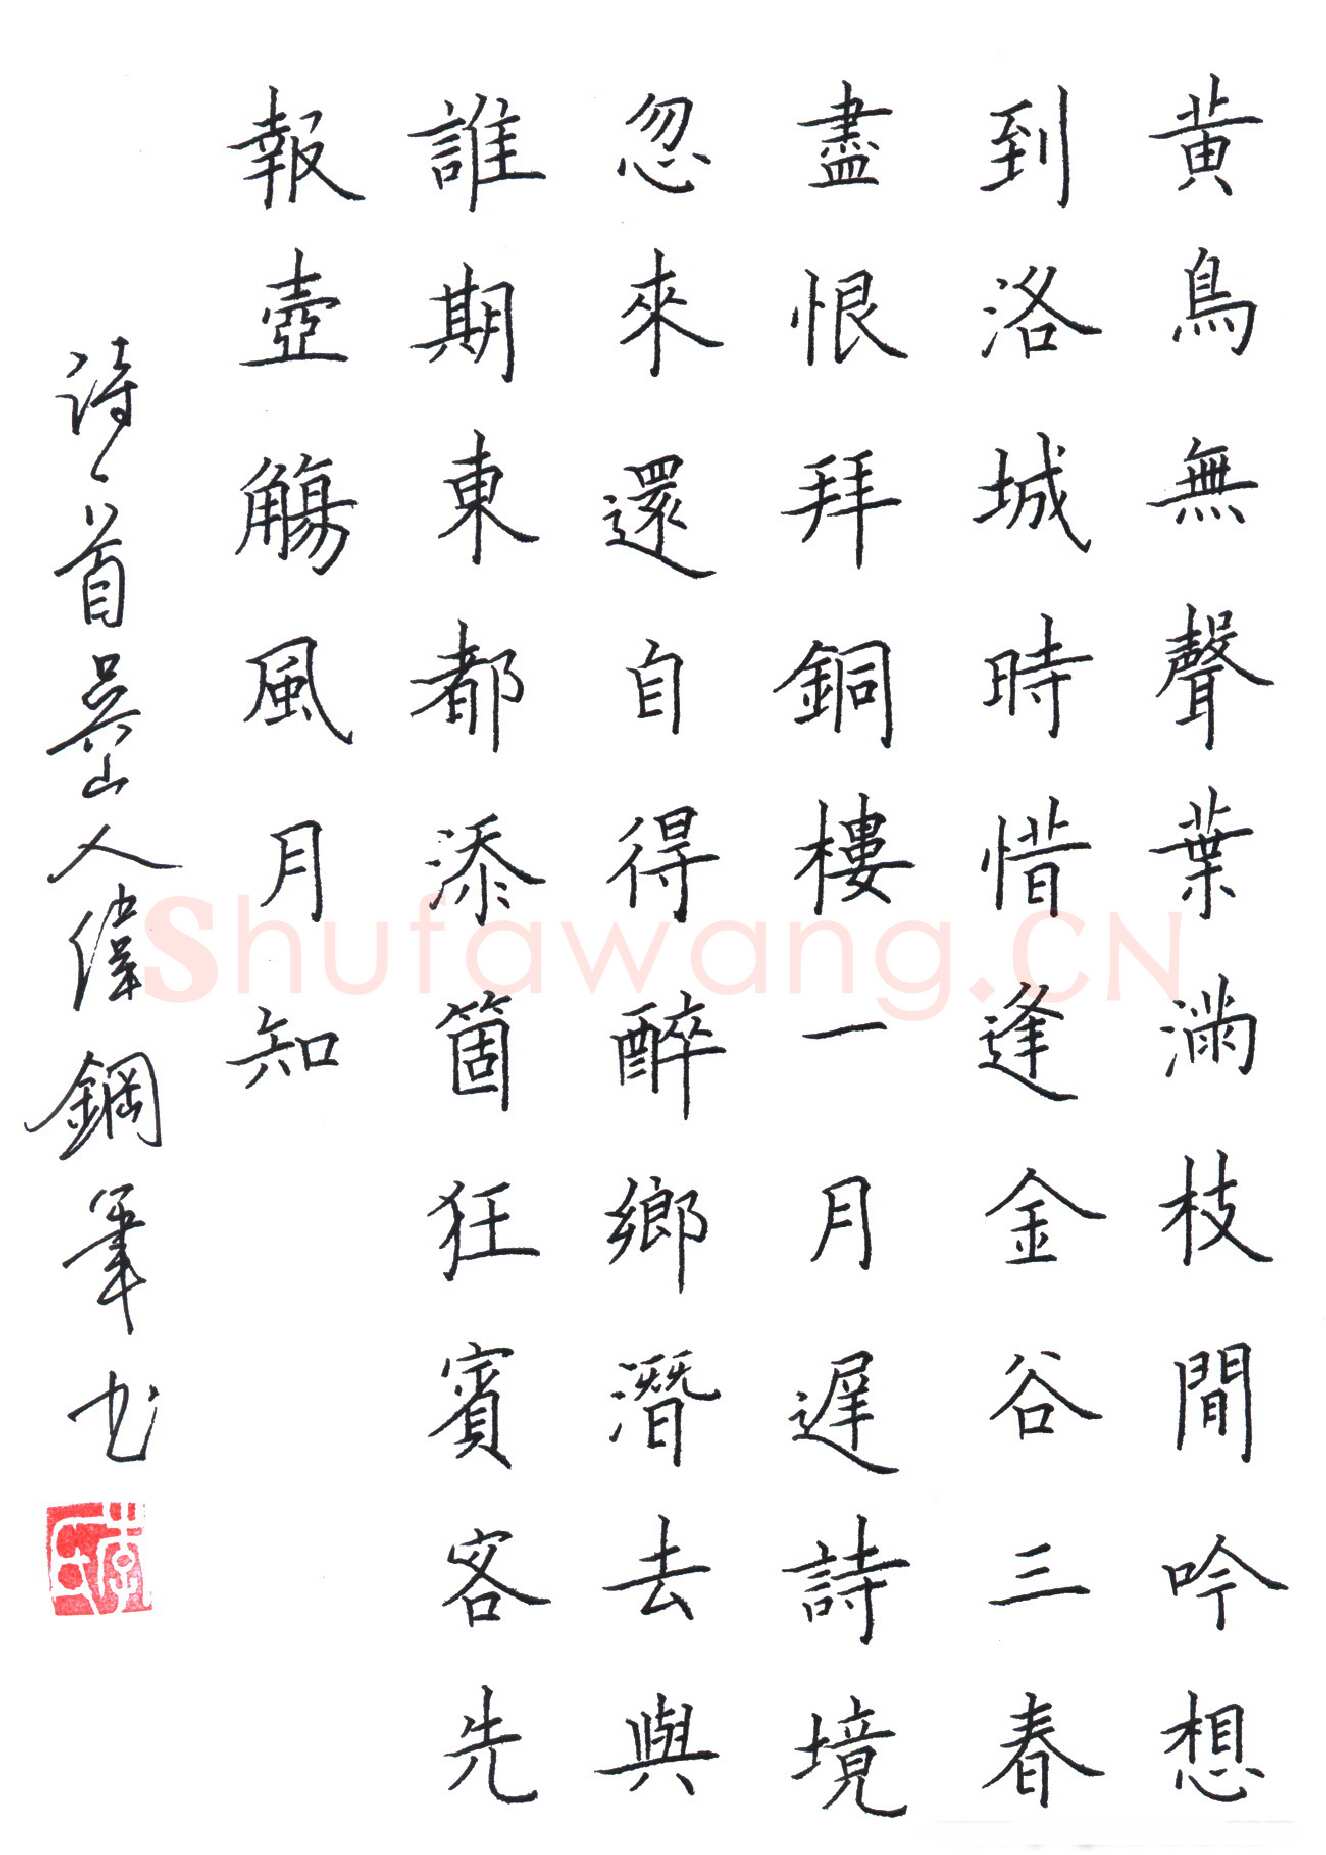 黄鳥無聲葉滿枝閒吟想
到洛城時惜逢金谷三春
盡恨拜銅樓一月遲詩境
忽來還自得醉鄉潛去與
誰期東都添箇狂賓客先
報壺觴風月知
詩一首吳山人偉鋼筆书
李氏
Shufawang.CN